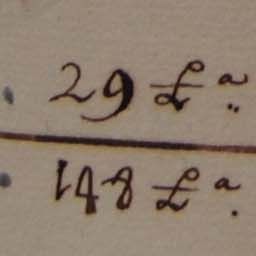 29 ℔ a
148 ℔ a